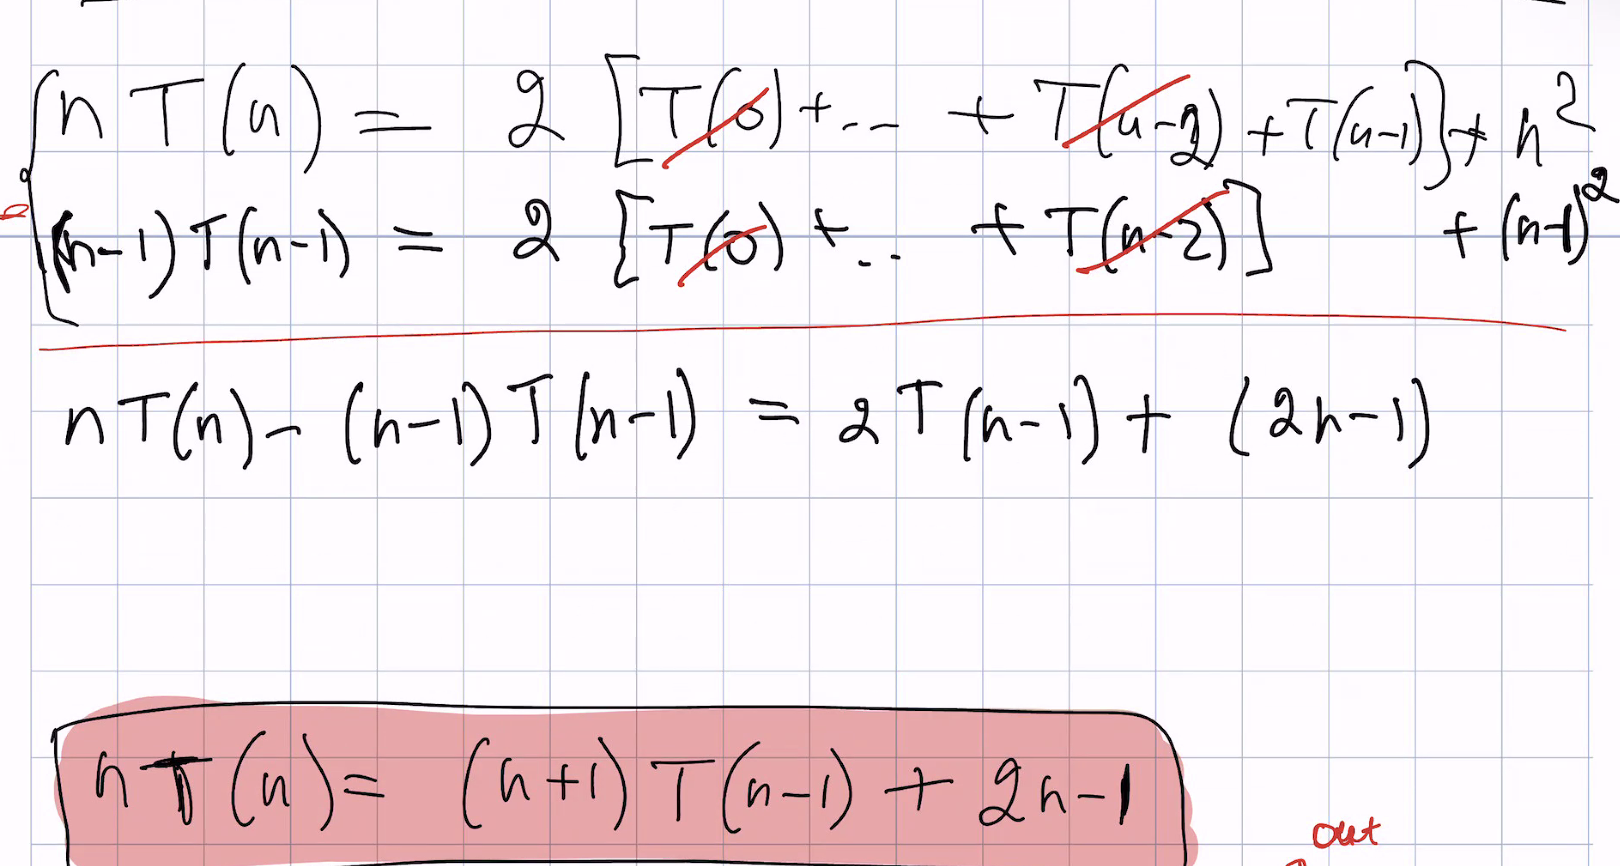 n T(n) = 2 [T(0) + ... + T(n-2) + T(n-1)] + n²
(n-1) T(n-1) = 2 [T(0) + .. + T(n-2)] + (n-1)²
nT(n) - (n-1) T(n-1) = 2T(n-1) + (2n-1)
nT(n) = (n+1) T(n-1) + 2n-1
out